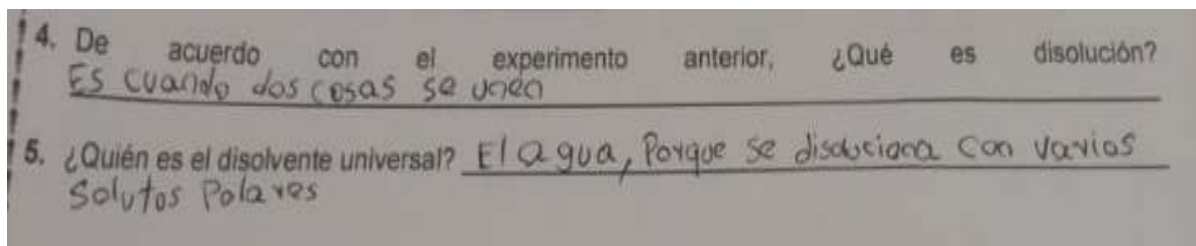 4. De acuerdo con el experimento anterior, ¿Qué es disolución?
Es cuando dos cosas se unen
5. ¿Quién es el disolvente universal? El agua, Porque se disoluciona con varios
Solutos Polares